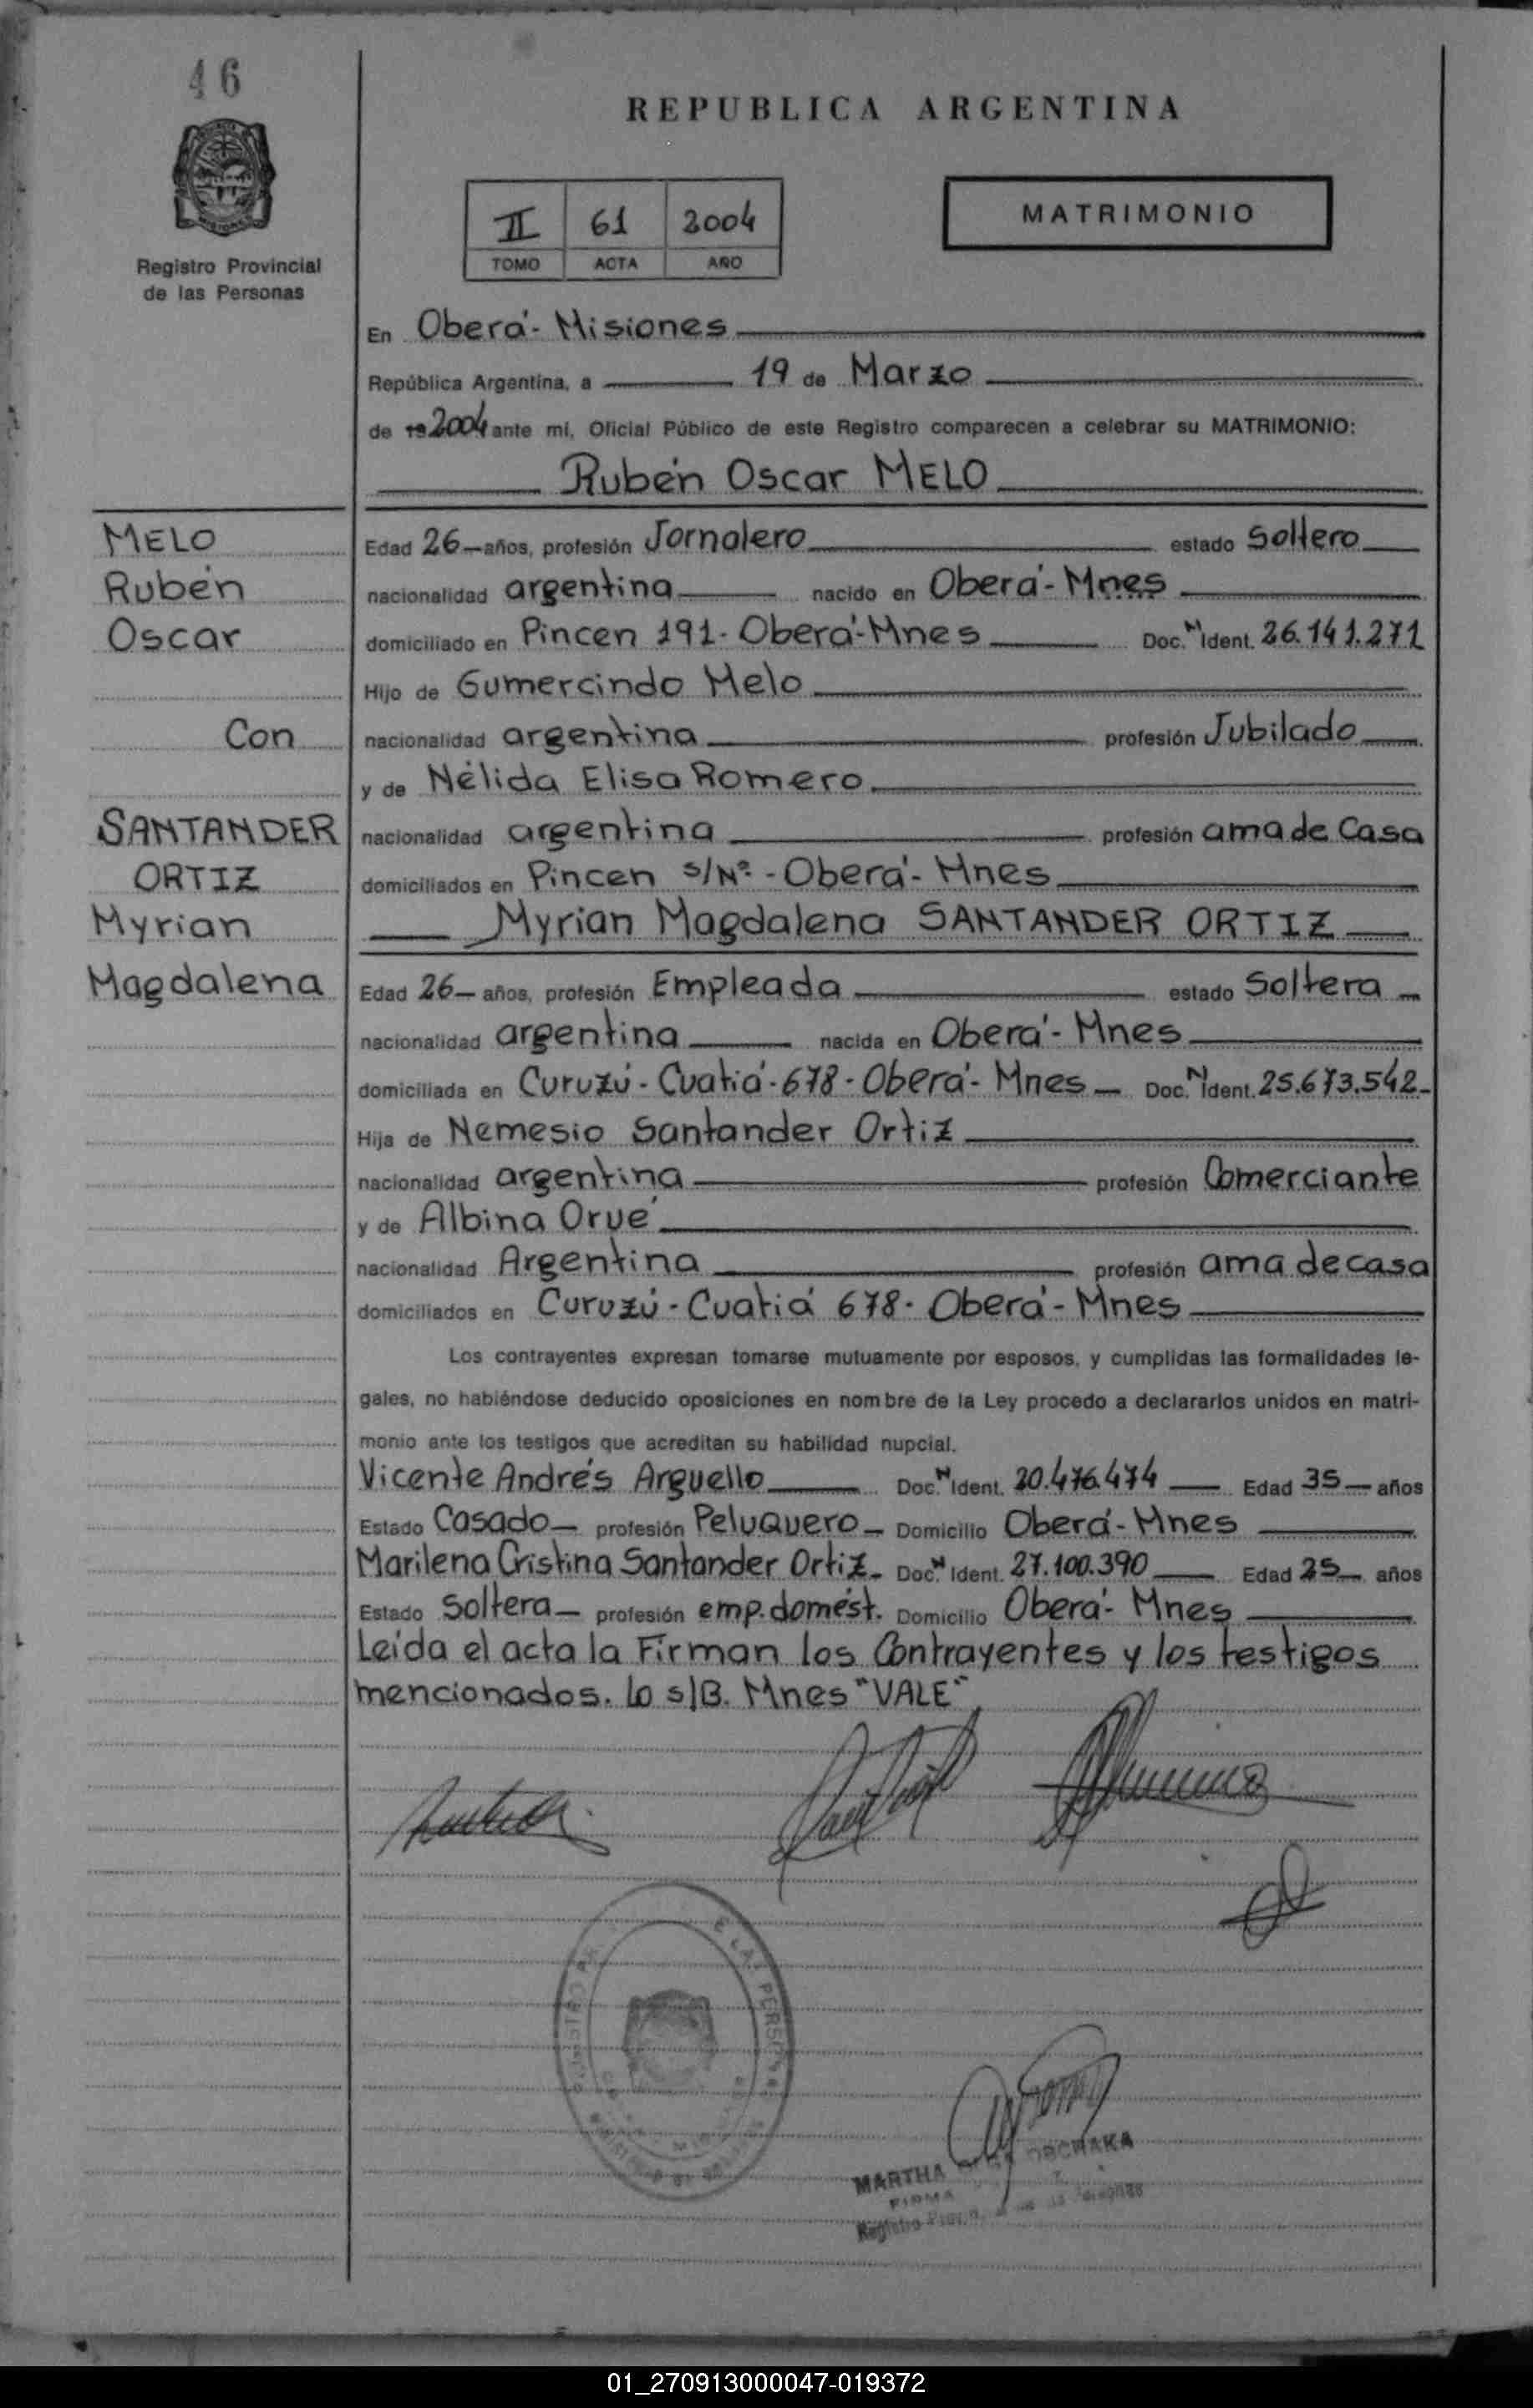 46
REPUBLICA ARGENTINA
II 61 2004
TOMO ACTA AÑO
MATRIMONIO
Registro Provincial
de las Personas
En Oberá - Misiones
República Argentina, a 19 de Marzo
de 19 2004 ante mí, Oficial Público de este Registro comparecen a celebrar su MATRIMONIO:
Rubén Oscar MELO
MELO
Rubén
Oscar
Con
SANTANDER
ORTIZ
Myrian
Magdalena
Edad 26 años, profesión Jornalero estado Soltero
nacionalidad argentina nacido en Oberá - Mnes
domiciliado en Pincen 191 - Oberá - Mnes Doc. N Ident. 26.141.271
Hijo de Gumercindo Melo
nacionalidad argentina profesión Jubilado
y de Nélida Elisa Romero
nacionalidad argentina profesión ama de Casa
domiciliados en Pincen s/Nº - Oberá - Mnes
Myrian Magdalena SANTANDER ORTIZ
Edad 26 años, profesión Empleada estado Soltera
nacionalidad argentina nacida en Oberá - Mnes
domiciliada en Curuzú - Cuatiá - 678 - Oberá - Mnes Doc. N Ident. 25.673.542
Hija de Nemesio Santander Ortiz
nacionalidad argentina profesión Comerciante
y de Albina Orué
nacionalidad Argentina profesión ama de casa
domiciliados en Curuzú - Cuatiá 678 - Oberá - Mnes
Los contrayentes expresan tomarse mutuamente por esposos, y cumplidas las formalidades le-
gales, no habiéndose deducido oposiciones en nombre de la Ley procedo a declararlos unidos en matri-
monio ante los testigos que acreditan su habilidad nupcial.
Vicente Andrés Arguello Doc. N Ident. 20.476.474 Edad 35 años
Estado Casado profesión Peluquero Domicilio Oberá - Mnes
Marilena Cristina Santander Ortiz Doc. N Ident. 27.100.390 Edad 25 años
Estado Soltera profesión emp. domést. Domicilio Oberá - Mnes
Leída el acta la Firman los Contrayentes y los testigos
mencionados. Lo s/B. Mnes "VALE"
MARTHA
FIRMA
Registro
01_270913000047-019372